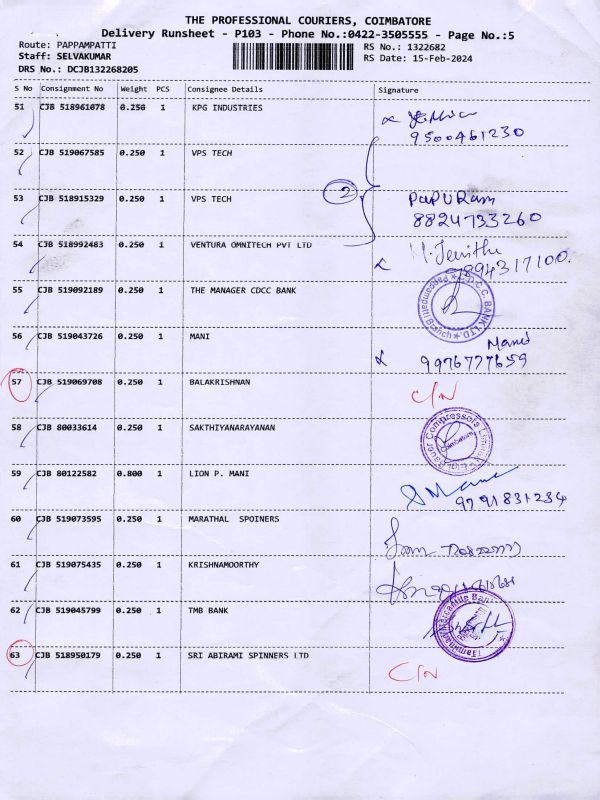 THE PROFESSIONAL COURIERS, COIMBATORE
Delivery Runsheet - P103 - Phone No.:0422-3505555 - Page No.:5
Route: PAPPAMPATTI
RS No.: 1322682
Staff: SELVAKUMAR
RS Date: 15-Feb-2024
DRS No.: DCJB132268205
S No Consignment No Weight PCS Consignee Details Signature
51 CJB 518961078 0.250 1 KPG INDUSTRIES
9500461230
52 CJB 519067585 0.250 1 VPS TECH
2
53 CJB 518915329 0.250 1 VPS TECH PapURam
8824733260
54 CJB 518992483 0.250 1 VENTURA OMNITECH PVT LTD
7894317100.
55 CJB 519092189 0.250 1 THE MANAGER CDCC BANK
C.D.C.C. BANK LTD. Pappampatti Branch
56 CJB 519043726 0.250 1 MANI
9976777659
57 CJB 519069708 0.250 1 BALAKRISHNAN C/N
58 CJB 80033614 0.250 1 SAKTHIYANARAYANAN
Bauer Compressors Coimbatore
59 CJB 80122582 0.800 1 LION P. MANI
9791831234
60 CJB 519073595 0.250 1 MARATHAL SPOINERS
61 CJB 519075435 0.250 1 KRISHNAMOORTHY
62 CJB 519045799 0.250 1 TMB BANK
Tamilnad Mercantile Bank
63 CJB 518950179 0.250 1 SRI ABIRAMI SPINNERS LTD
C/N